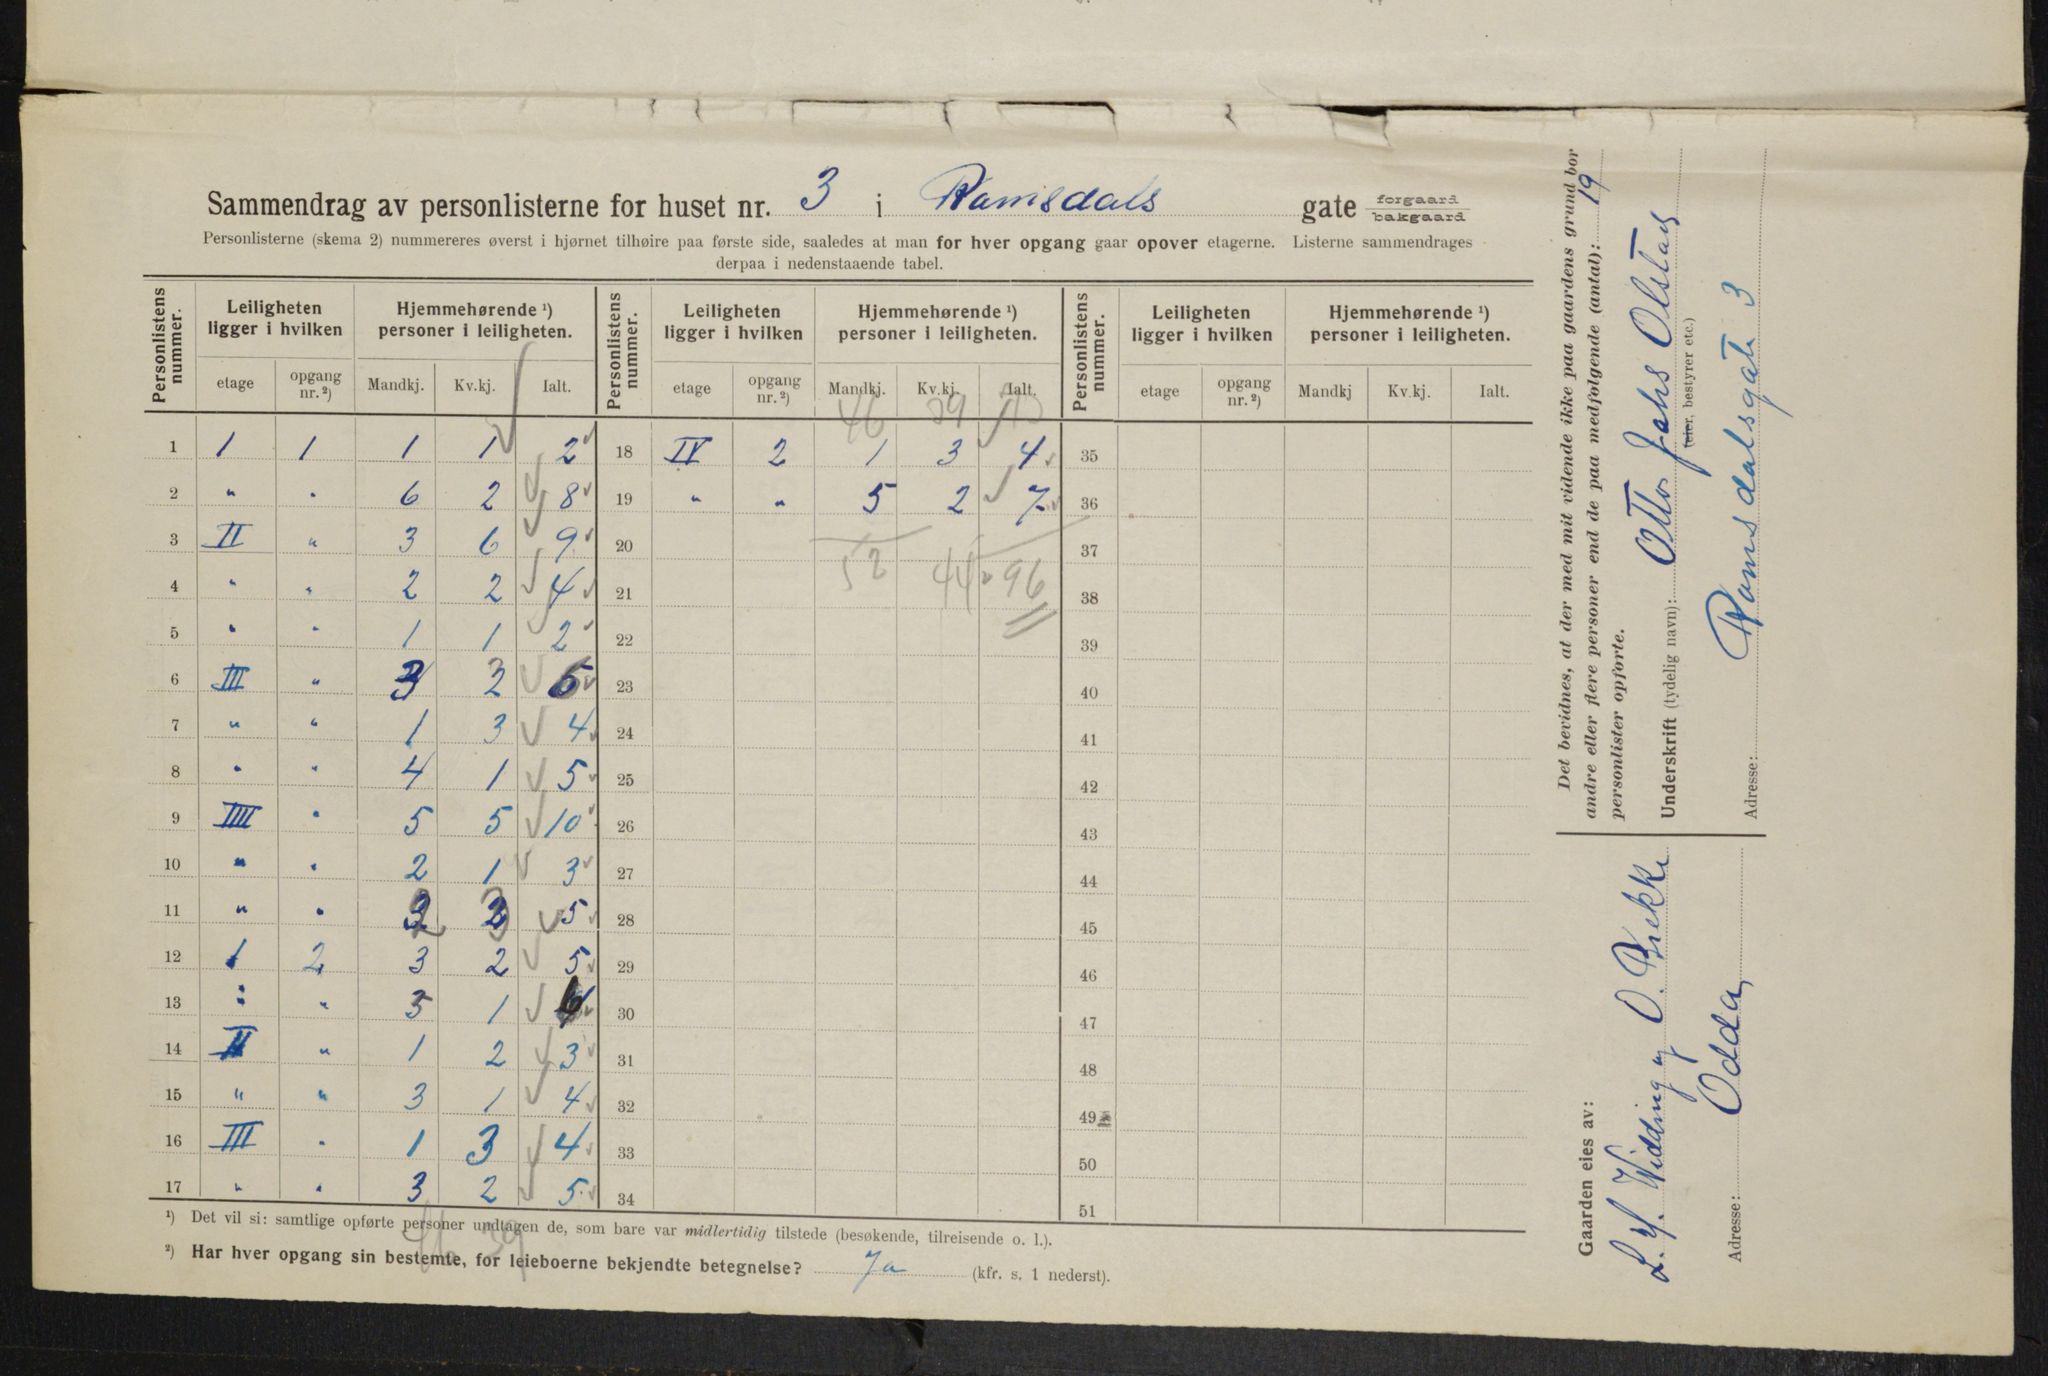 Sammendrag av personlisterne for huset nr. 3 i Ramsdals gate forgaard bakgaard
Personlisterne (skema 2) nummereres øverst i hjørnet tilhøire paa første side, saaledes at man for hver opgang gaar opover etagerne. Listerne sammendrages
derpaa i nedenstaaende tabel.
Personlistens nummer. Leiligheten ligger i hvilken Hjemmehørende ¹) personer i leiligheten. Personlistens nummer. Leiligheten ligger i hvilken Hjemmehørende ¹) personer i leiligheten. Personlistens nummer. Leiligheten ligger i hvilken Hjemmehørende ¹) personer i leiligheten.
etage opgang nr. ²) Mandkj. Kv.kj. Ialt. etage opgang nr. ²) Mandkj. Kv.kj. Ialt. etage opgang nr. ²) Mandkj Kv.kj. Ialt.
46 39
1 1 1 1 1 2 18 IV 2 1 3 4 35
2 " " 6 2 8 19 " " 5 2 7 36
3 II " 3 6 9 20 37
4 " " 2 2 4 21 52 44 96 38
5 " " 1 1 2 22 39
6 III " 3 2 5 23 40
7 " " 1 3 4 24 41
8 " " 4 1 5 25 42
9 IIII " 5 5 10 26 43
10 " " 2 1 3 27 44
11 " " 2 3 5 28 45
12 1 2 3 2 5 29 46
13 " " 3 1 4 30 47
14 II " 1 2 3 31 48
15 " " 3 1 4 32 49
16 III " 1 3 4 33 50
17 " " 3 2 5 34 51
46 39
¹) Det vil si: samtlige opførte personer undtagen de, som bare var midlertidig tilstede (besøkende, tilreisende o. l.).
²) Har hver opgang sin bestemte, for leieboerne bekjendte betegnelse? Ja (kfr. s. 1 nederst).
Det bevidnes, at der med mit vidende ikke paa gaardens grund bor
andre eller flere personer end de paa medfølgende (antal): 19
personlister opførte.
Underskrift (tydelig navn): Otto Johs Olstad
(eier, bestyrer etc.)
Adresse: Ramsdalsgate 3
Gaarden eies av:
L. H. Widding og O. Brekke
Adresse: Odda